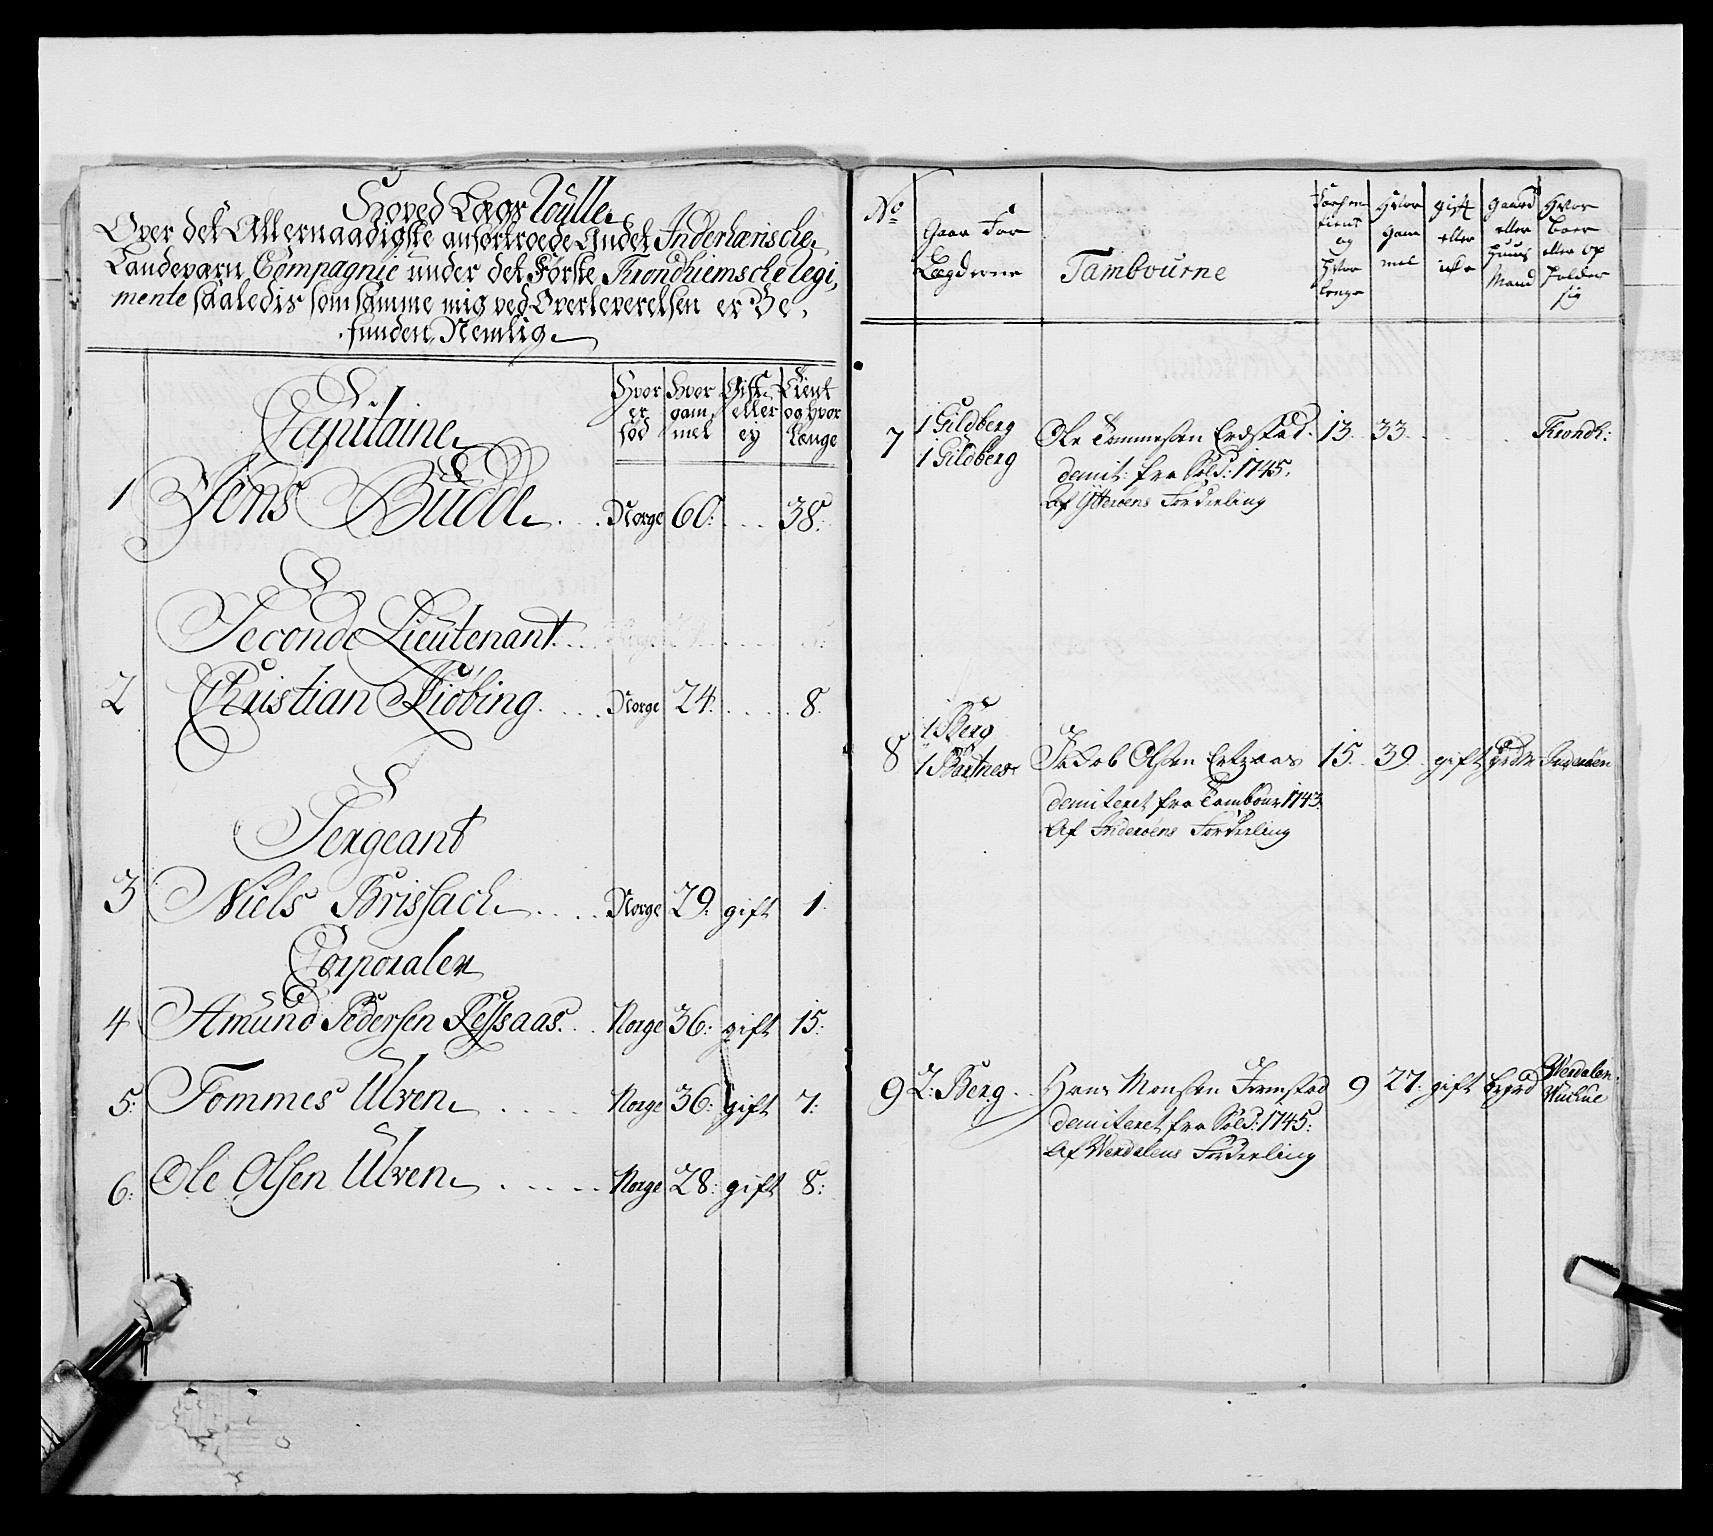 Hoved Lægs Rulle
Over det Allernaadigste anfortroede Andet Inderhærische
Landeværn Compagnie under det Første Trondhiemsche Regi,
mente saaledis som samme mig ved Overleverelsen er Be,
funden, Nemlig
Hvor er fød
Hvor gammel
Gift eller ey
Tient og hvor Længe
Capitaine
1 Jens Budde . . . Norge 60: . . . 38:
Seconde Lieutenant . . .
2 Christian Kiöbing . . . . Norge 24: . . . . 8.
Sergeant
3 Niels Brissach . . . . Norge 29: gift 1.
Corporaler
4 Amund Pedersen Ressaas . . . Norge 36: gift 15:
5: Tommes Ulven . . . . Norge 36: gift 7:
6: Ole Olsen Ulven . . . . . Norge 28: gift 8:
No
Gaar For Lægderne
Tambourne
tient og Hvor lenge
Hvor gam mel
gift eller icke
gaard eller Huus Mand
Hvor boer eller op holder sig
7 1 Gildberg Ole Tommesen 13. 33. . . . Trondh:
1 Gildberg demit: fra Sold: 1745.
Af Ytterøens Fordeeling
8 1 Berg
1 Bartnes Jakob Olsen 15. 39. gift
demiteret fra Tambour 1743.
Af Inderøens Fordeeling
9 2: Berg . . Hans Monsen 9 27: gift Werdalen
demiteret fra Sold: 1745:
Af Werdalens Fordeeling